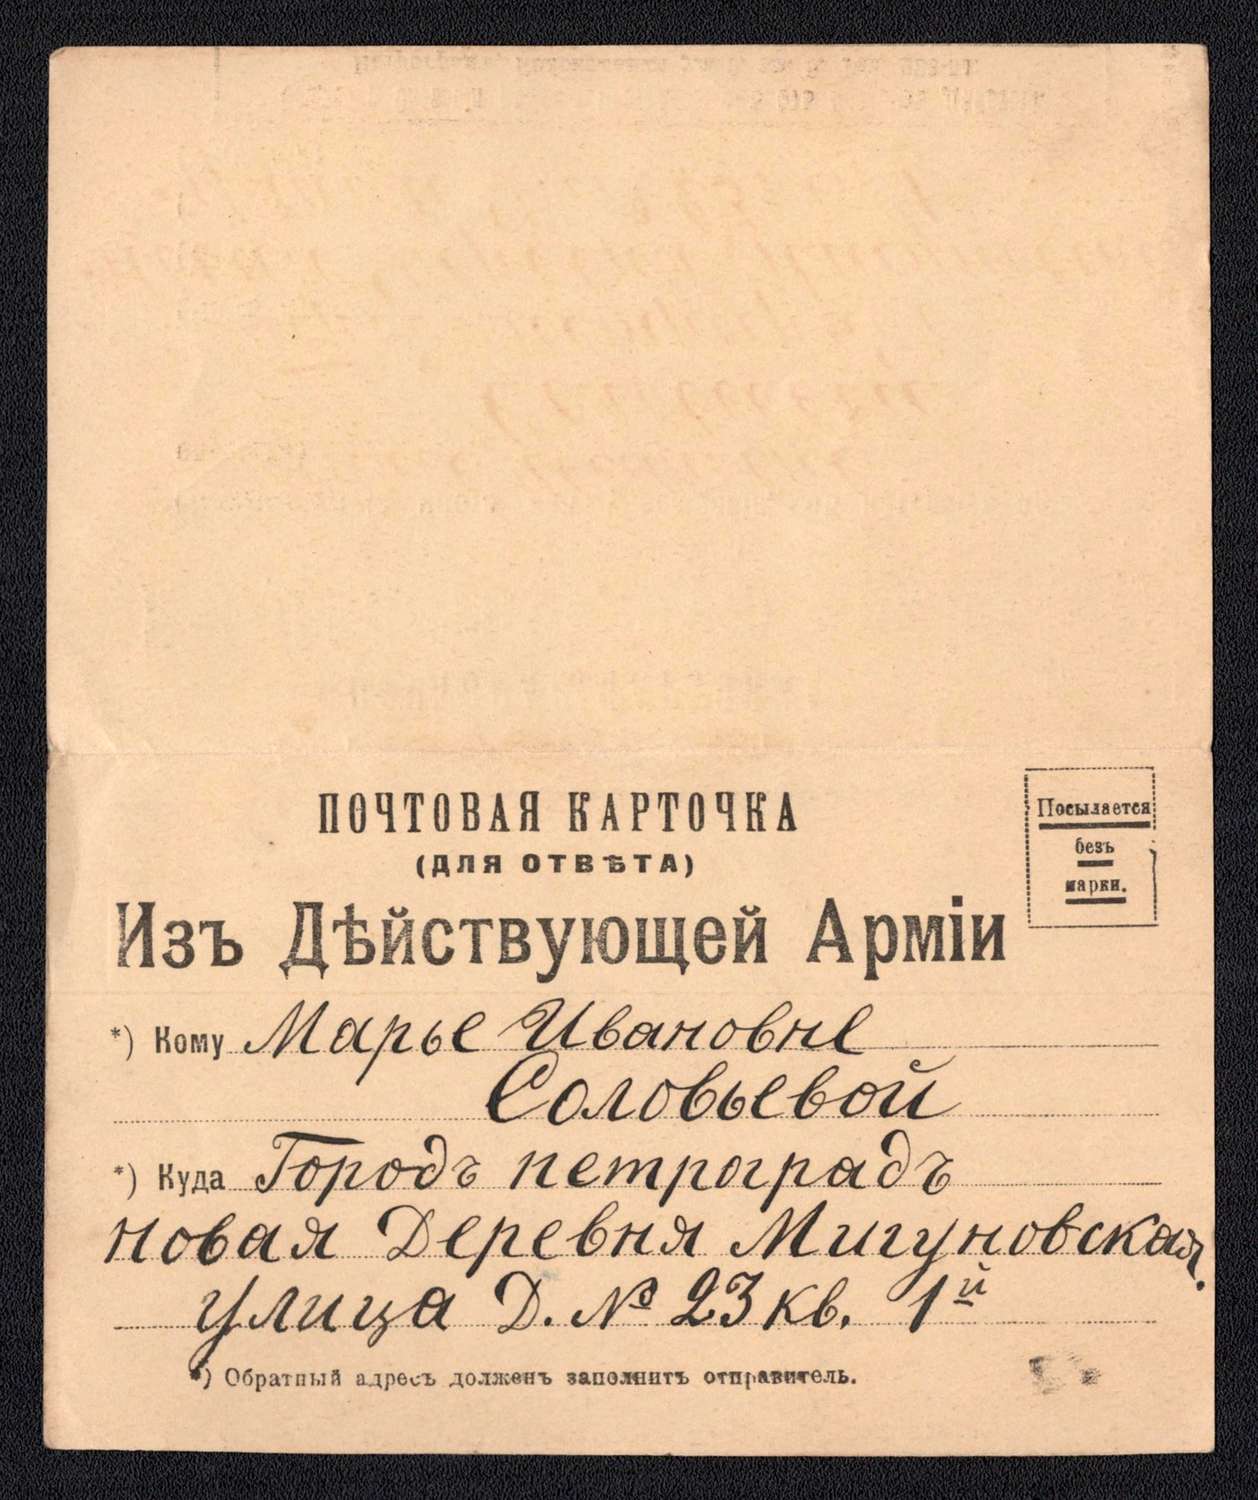 ПОЧТОВАЯ КАРТОЧКА
(ДЛЯ ОТВѢТА)
Изъ Дѣйствующей Арміи
Посылается
безъ
марки.
*) Кому Марье Ивановне
Соловьевой
*) Куда Городъ петроградъ
новая Деревня Мигуновская
улица Д. № 23 кв. 1й
*) Обратный адресъ долженъ заполнить отправитель.